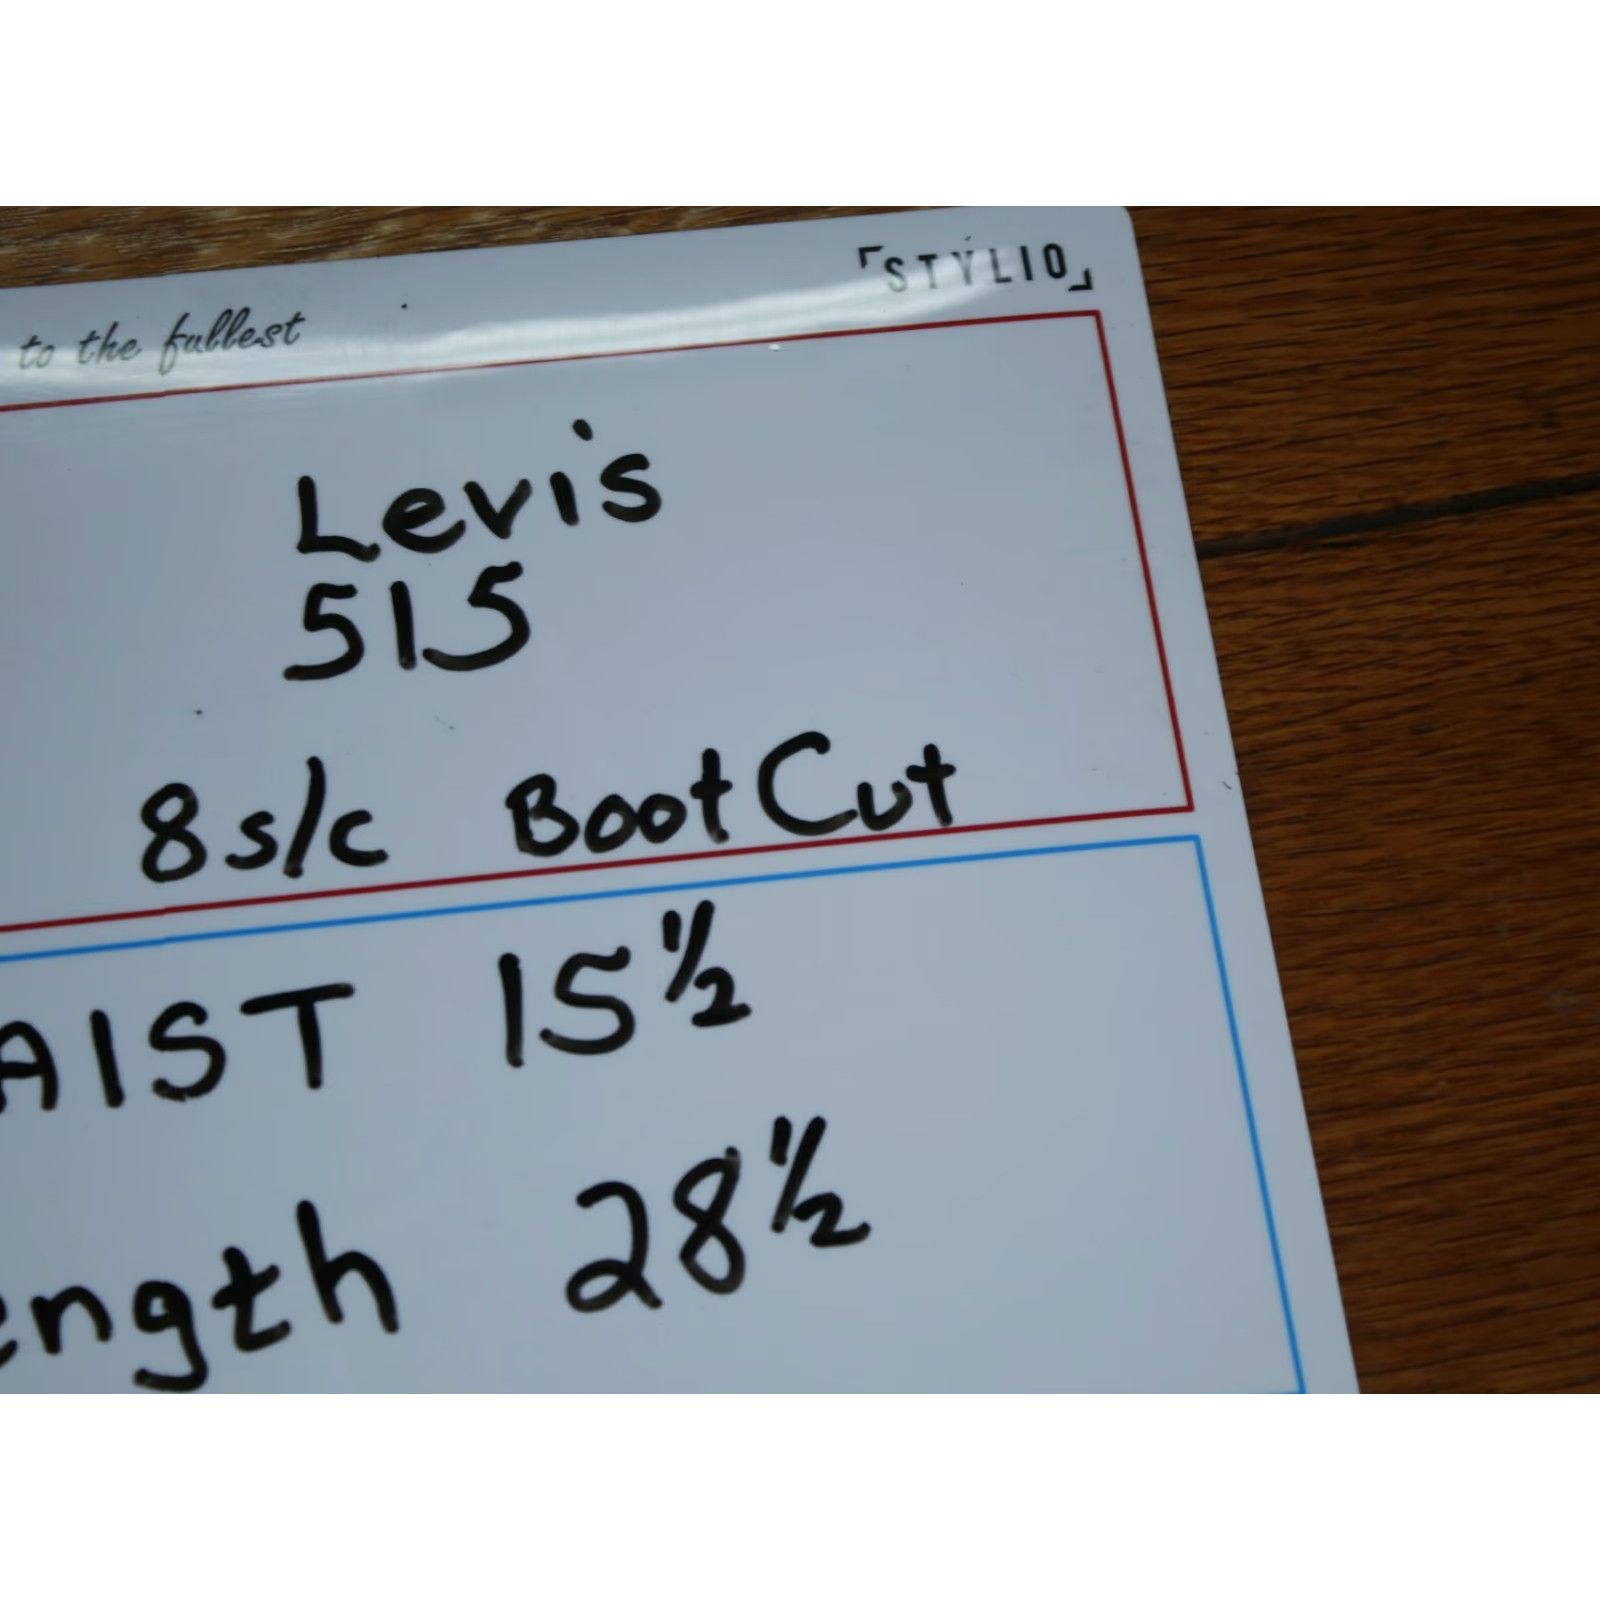 STYLIO
to the fullest
Levi's
515
8 s/c Boot Cut
AIST 15 1/2
ength 28 1/2